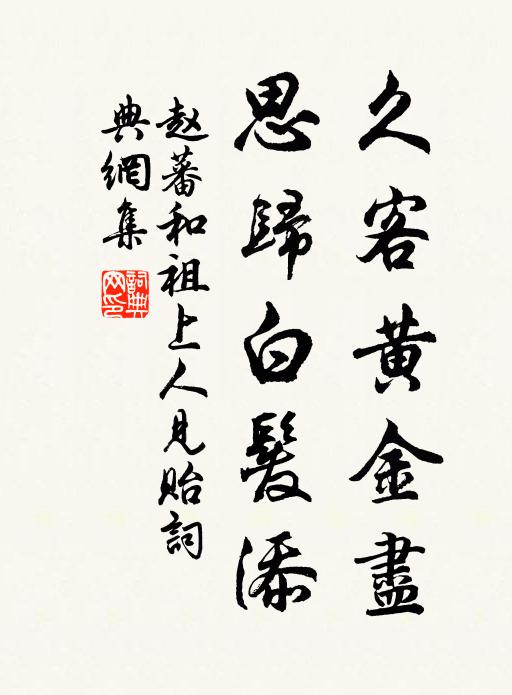 久客黄金盡
思歸白髮添
赵蕃和祖上人見貽詞
典網集
詞典
网印